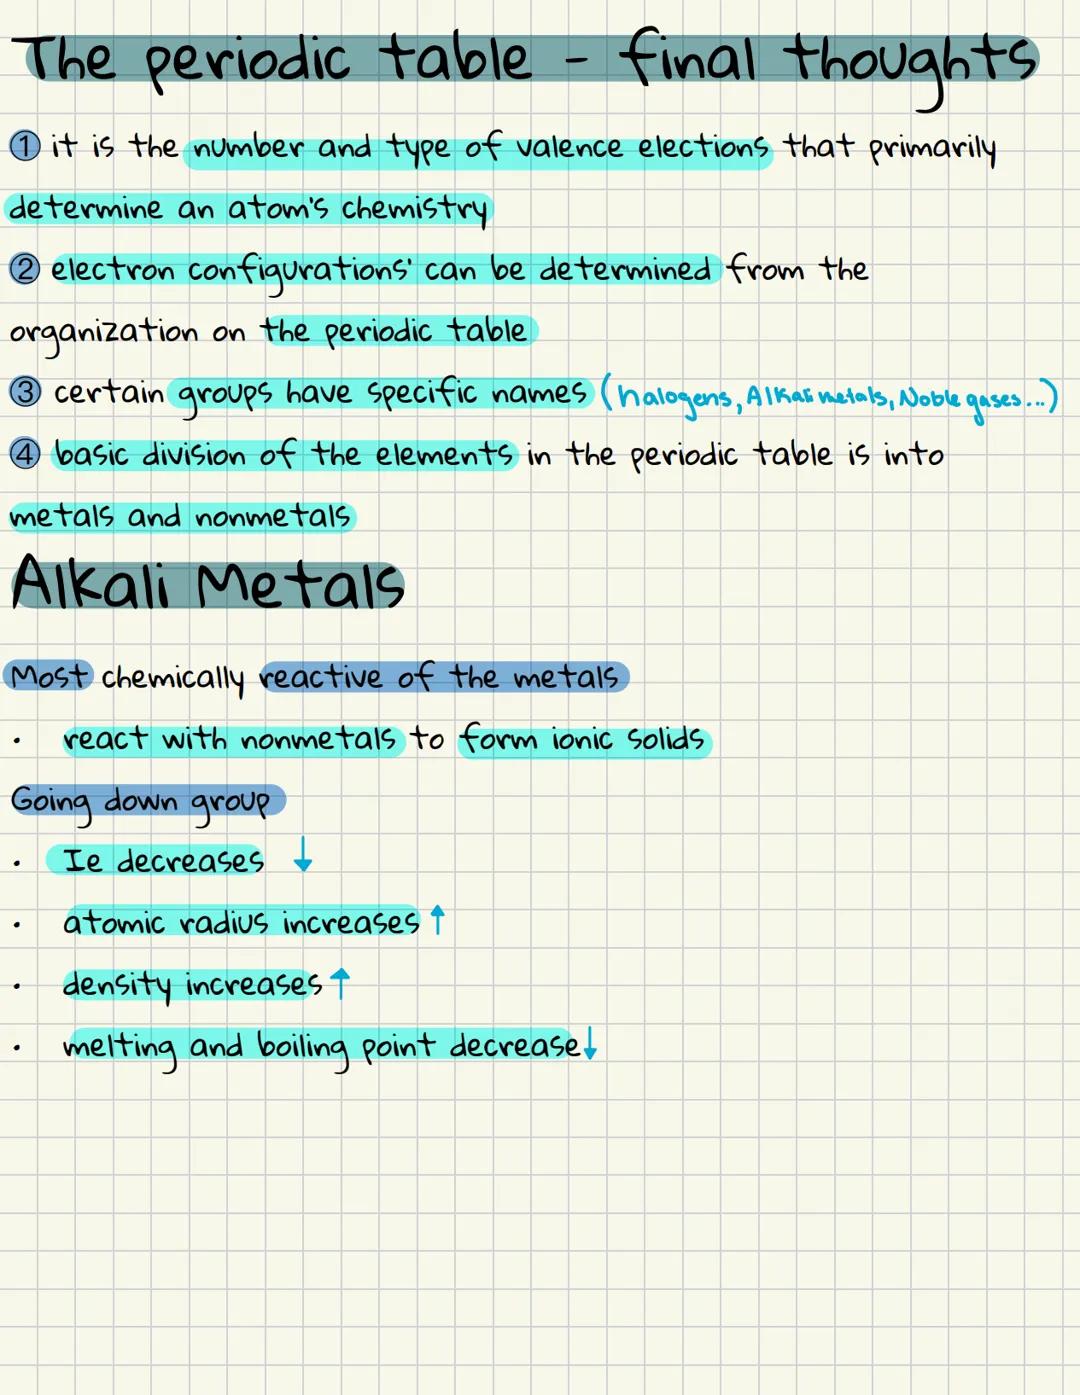 The periodic table - final thoughts
① it is the number and type of valence elections that primarily
determine an atom's chemistry
② electron configurations' can be determined from the
organization on the periodic table
③ certain groups have specific names (halogens, Alkali metals, Noble gases...)
④ basic division of the elements in the periodic table is into
metals and nonmetals
Alkali Metals
Most chemically reactive of the metals
• react with nonmetals to form ionic solids
Going down group
• Ie decreases ↓
• atomic radius increases ↑
• density increases ↑
• melting and boiling point decrease ↓